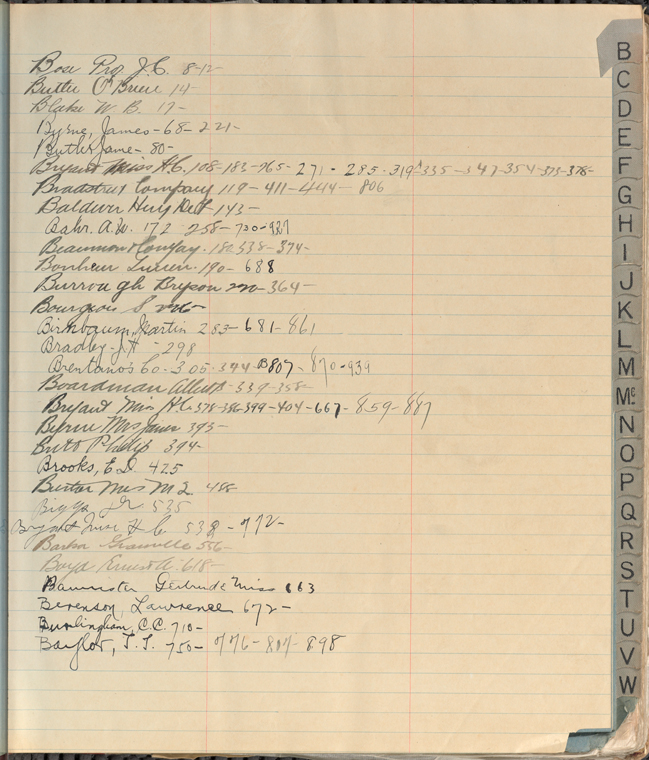 Bose Prof J.C. 8-12-
Butler O'Briene 14-
Blake W. B. 17-
Byrne, James-68-221-
Butler Jane-80-
Bryant Miss H.C. 108-183-265-271-285-319-335-347-354-373-378-
Bradstreet Company 119-411-444- 806
Baldwin 143-
Bahr. A.W. 172 258-730-927
Beaumont Company. 182 338-374-
Bonheur Lucien. 190- 688
Burrough Bryson 220-364-
Bourgeois S
Birnbaum, Martin 283-681-861
Bradley-J.H - 298
Brentano's Co-305-344-807-870-939
Boardman Albert-339-358-
Bryant Miss H.C. 378-386-399-404-667-859-887
Byrne Mrs James 393-
Butt Philip 394-
Brooks, E.D. 425
Burton Mrs M L 488
535
Bryant Miss H C 538-772-
Barker Granville 556-
Boyd Ernest A. 618-
Bannister Gertrude Miss 663
Berenson, Lawrence 672-
Burlingham, C.C. 710-
Baylor, J.J. 750-776-807-898
B
C
D
E
F
G
H
I
J
K
L
M
Mc
N
O
P
Q
R
S
T
U
V
W